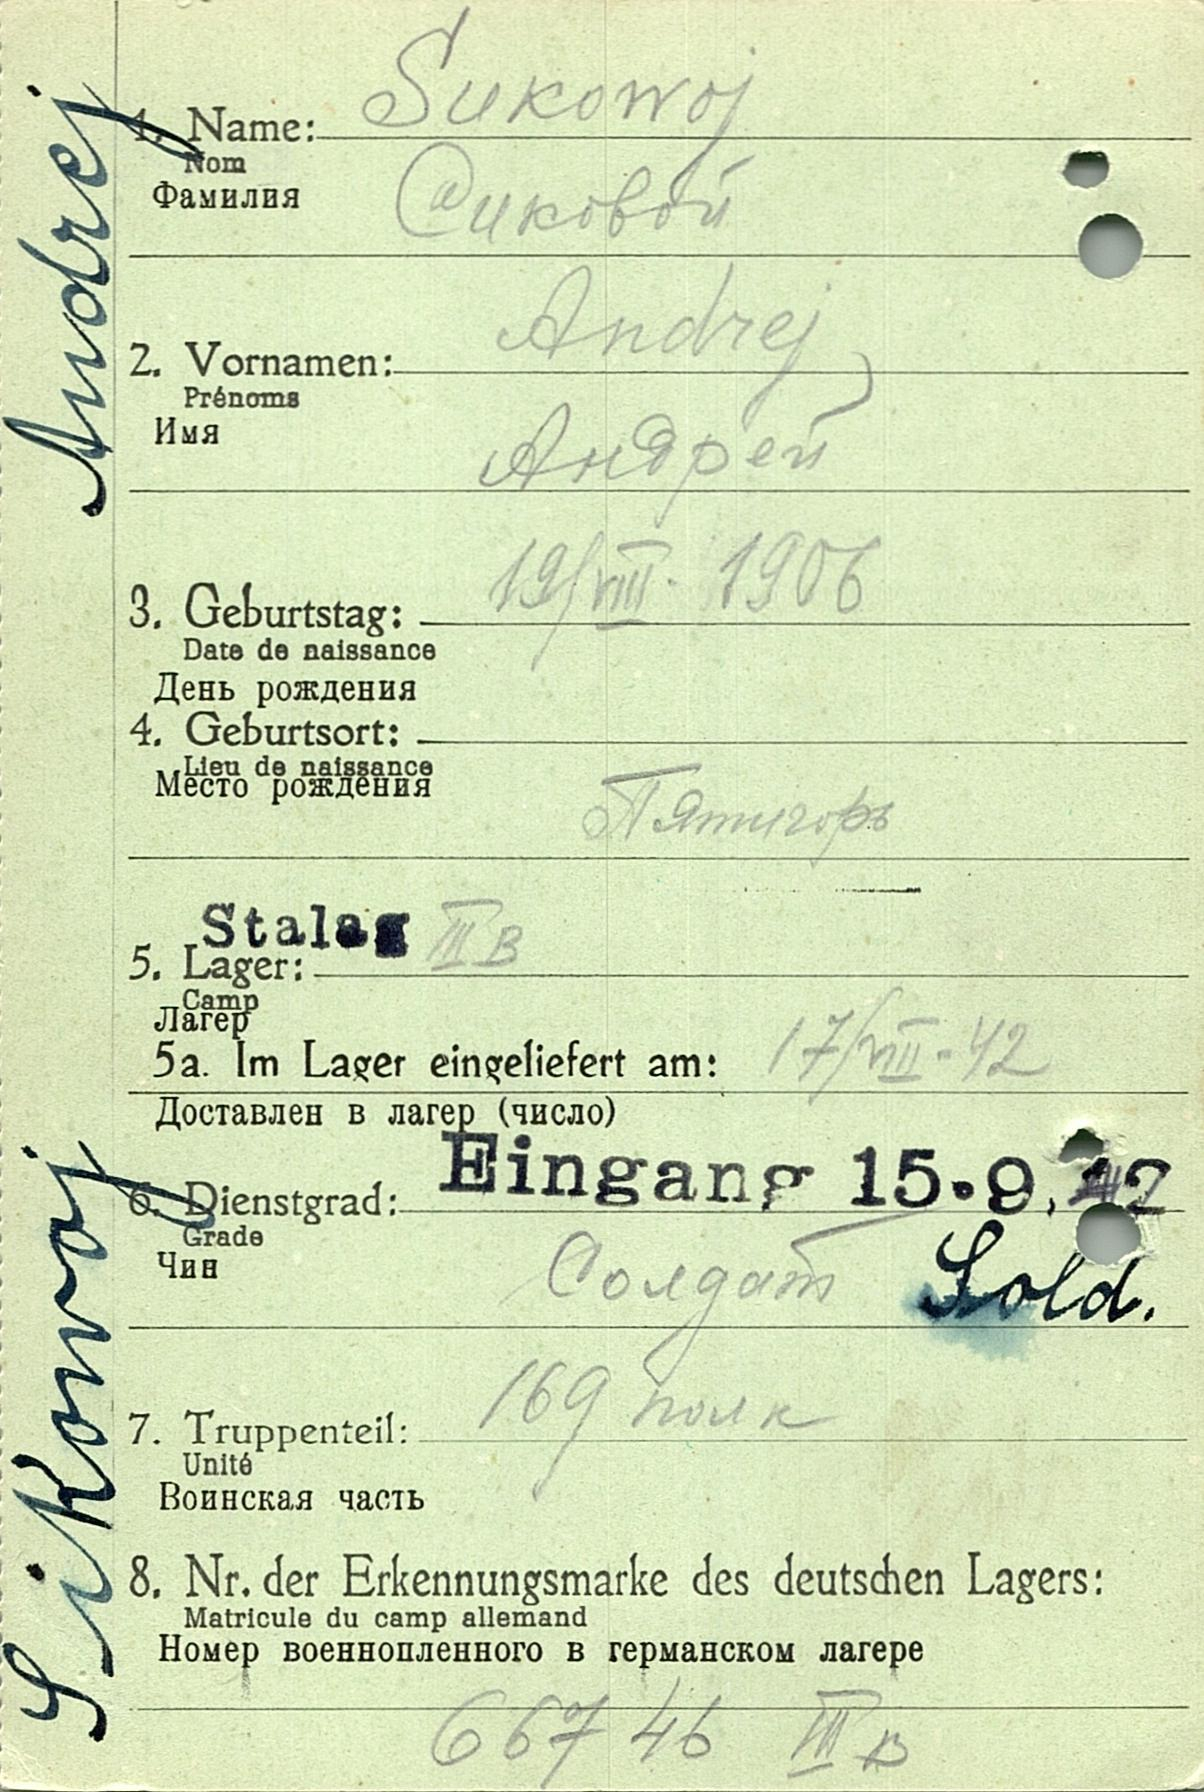 Sikowoj Andrej
Sukowoj
1. Name:
Nom
Фамилия
Сиковой
Andrej
2. Vornamen:
Prénoms
Имя
Андрей
19/VIII. 1906
3. Geburtstag:
Date de naissance
День рождения
4. Geburtsort:
Lieu de naissance
Место рождения
Пятигорь
Stalag III B
5. Lager:
Camp
Лагер
5a. Im Lager eingeliefert am: 17/VIII-42
Доставлен в лагер (число)
Eingang 15.9.42
6. Dienstgrad:
Grade
Чин
Солдат Sold.
169 полк
7. Truppenteil:
Unité
Воинская часть
8. Nr. der Erkennungsmarke des deutschen Lagers:
Matricule du camp allemand
Номер военнопленного в германском лагере
66746 III B